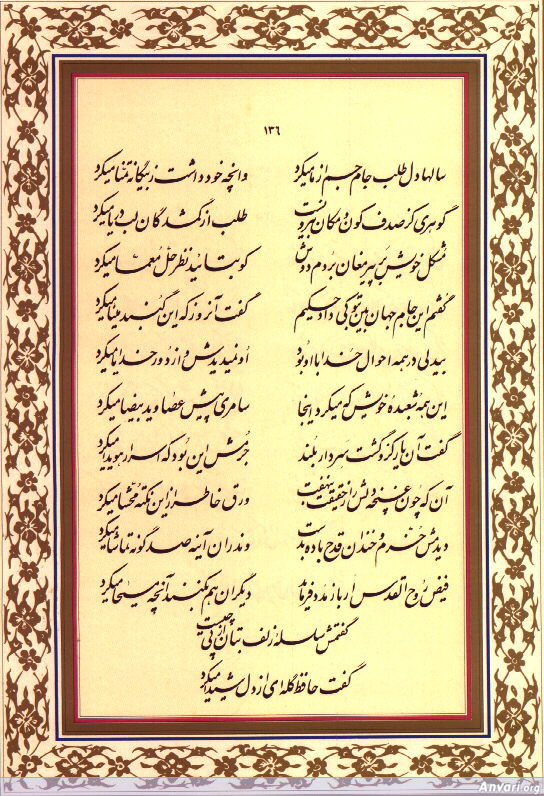 ۱۳۶
سالها دل طلب جام جم از ما میکرد وانچه خود داشت ز بیگانه تمنا میکرد
گوهری کز صدف کون و مکان بیرونست طلب از گمشدگان لب دریا میکرد
مشکل خویش بر پیر مغان بردم دوش کو بتائید نظر حل معما میکرد
گفتم این جام جهان بین بتو کی داد حکیم گفت آنروز که این گنبد مینا میکرد
بیدلی در همه احوال خدا با او بود او نمیدیدش و از دور خدایا میکرد
این همه شعبده خویش که میکرد اینجا سامری پیش عصا و ید بیضا میکرد
گفت آن یار کزو گشت سر دار بلند جرمش این بود که اسرار هویدا میکرد
آن که چون غنچه دلش راز حقیقت بنهفت ورق خاطر از این نکته محشا میکرد
دیدمش خرم و خندان قدح باده بدست وندران آینه صد گونه تماشا میکرد
فیض روح القدس ار باز مدد فرماید دیگران هم بکنند آنچه مسیحا میکرد
گفتمش سلسله زلف بتان از پی چیست
گفت حافظ گله‌ای از دل شیدا میکرد
Anvari.org